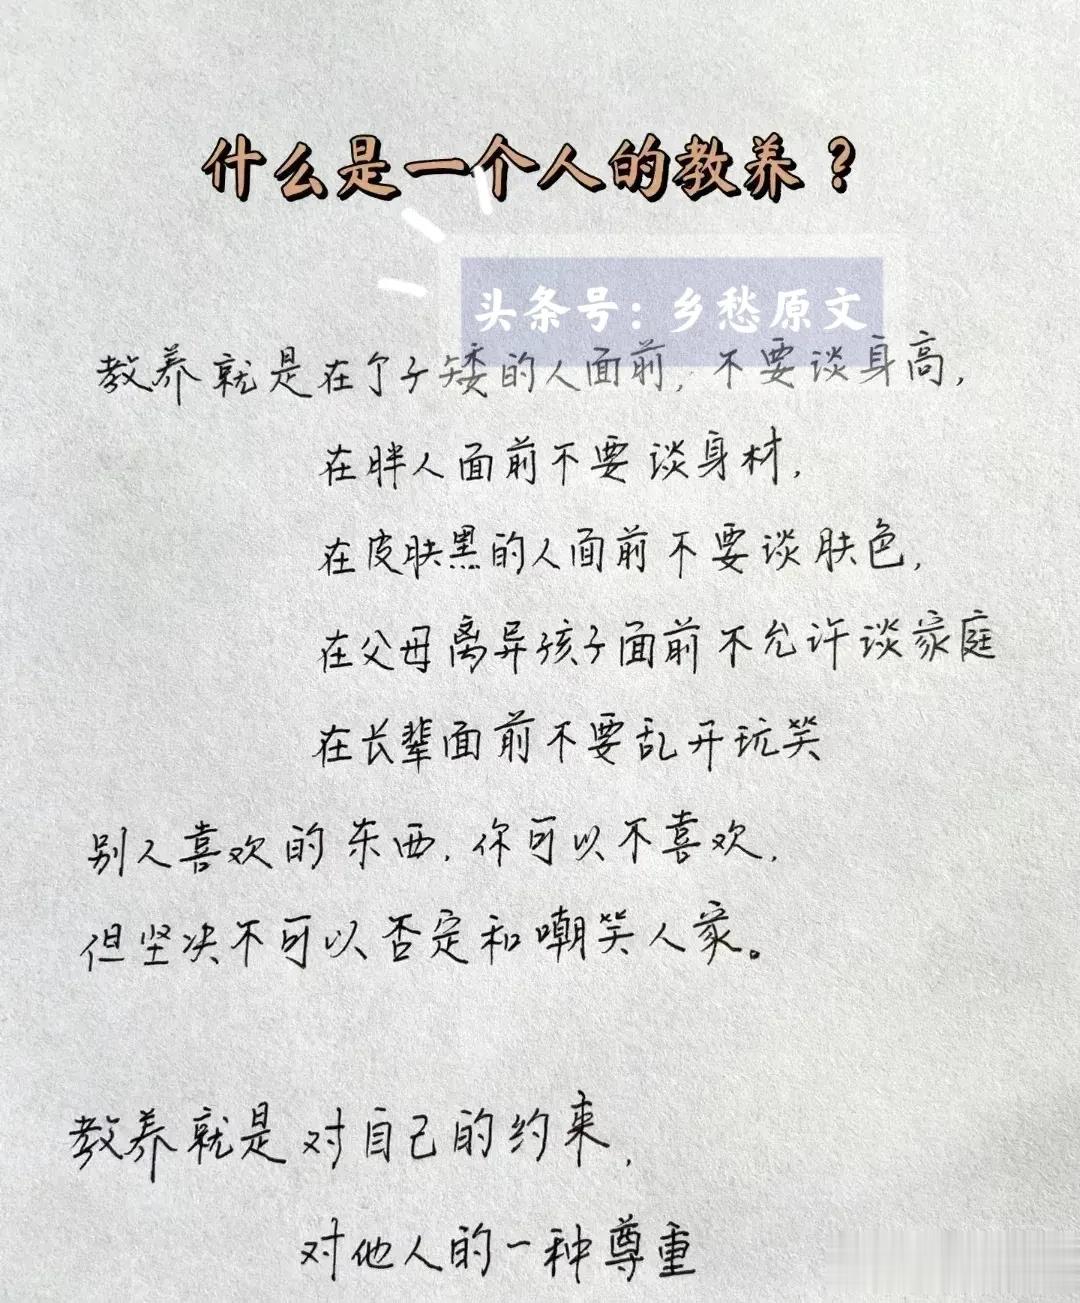 什么是一个人的教养？
头条号：乡愁原文
教养就是在个子矮的人面前，不要谈身高，
在胖人面前不要谈身材，
在皮肤黑的人面前不要谈肤色，
在父母离异孩子面前不允许谈家庭
在长辈面前不要乱开玩笑
别人喜欢的东西，你可以不喜欢，
但坚决不可以否定和嘲笑人家。
教养就是对自己的约束，
对他人的一种尊重